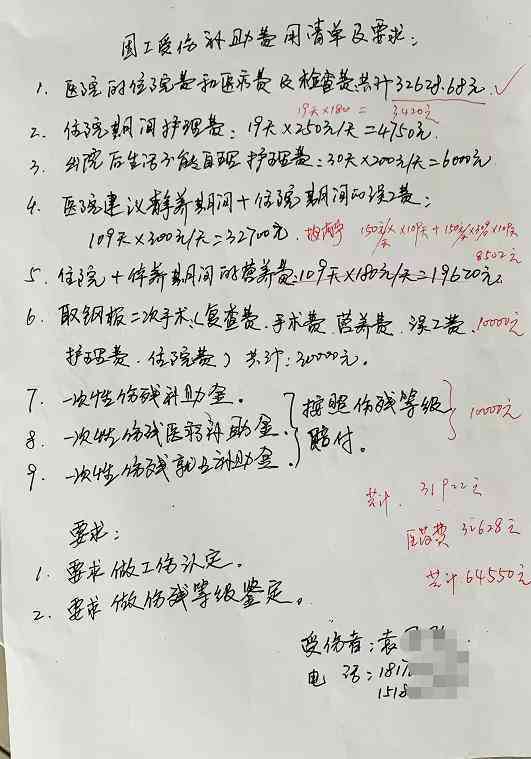 因工受伤补助费用清单及要求:
1. 医院的住院费和医疗费及检查费共计32628.68元 ✓
19天×180 = 3420元
2. 住院期间护理费:19天×250元/天=4750元.
3. 出院后生活不能自理护理费:30天×200元/天=6000元
4. 医院建议静养期间+住院期间的误工费:
109天×300元/天=32700元.
150元/天×109天+150元/天
8502元
5. 住院+停养期间的营养费:109天×180元/天=19620元.
6. 取钢板二次手术(复查费.手术费.营养费.误工费. 10000元
护理费.住院费)共计:30000元.
7. 一次性伤残补助金.
8. 一次性伤残医疗补助金.
9. 一次性伤残就业补助金.
按照伤残等级
赔付.
10000元
共计. 31922元
医药费 32628元
共计 64550元
要求:
1. 要求做工伤认定.
2. 要求做伤残等级鉴定.
受伤者:袁
电 话:1817
1518